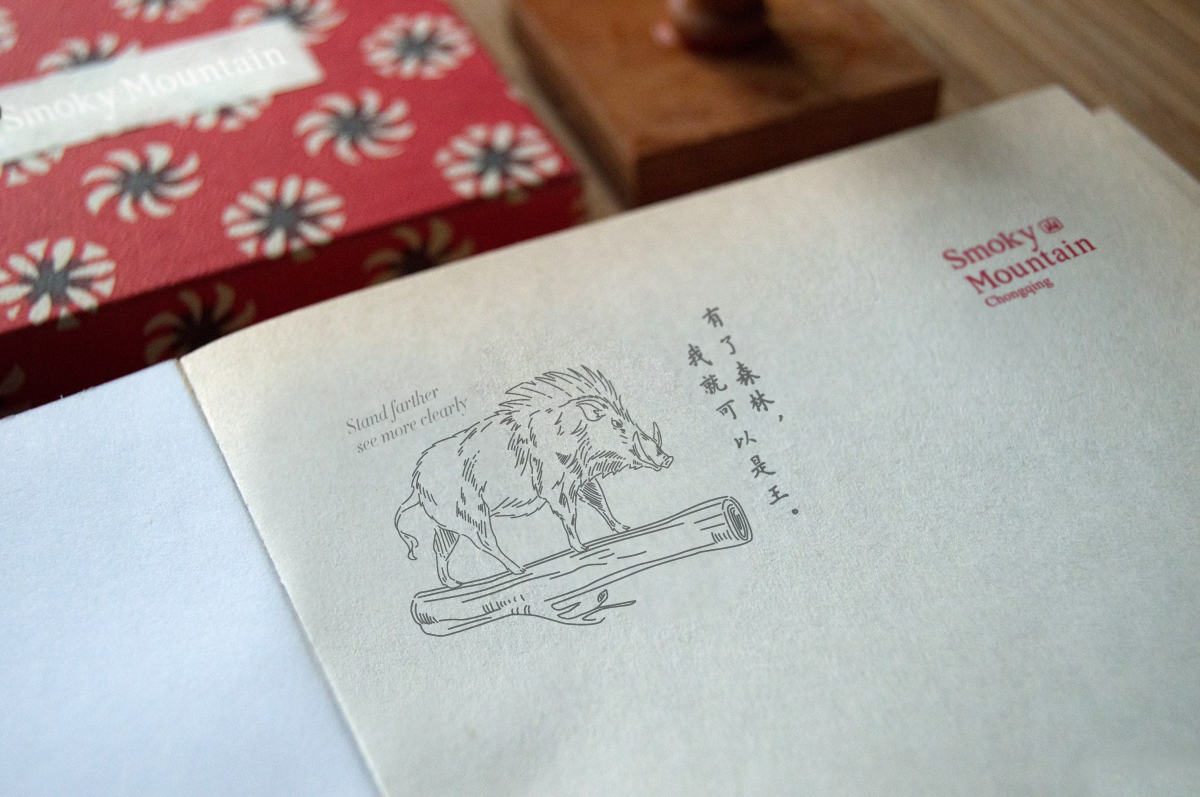 Smoky Mountain
Smoky
Mountain
Chongqing
Stand farther
see more clearly
有了森林，
我就可以是王。